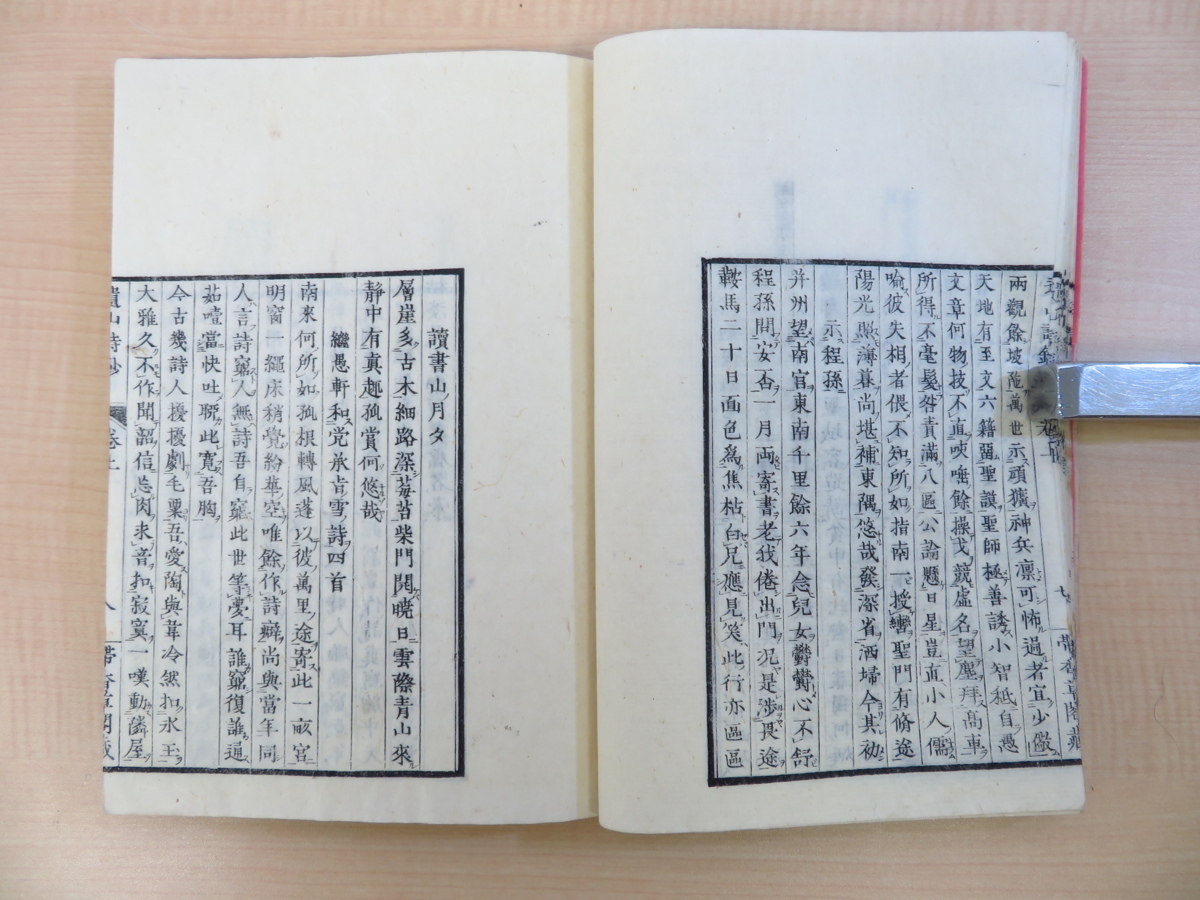 兩觀餘坡陁萬世示頑獷神兵凛可怖過者宜少儆
天地有至文六籍留聖謨聖師極善誘小智秪自愚
文章何物技不直咉唾餘操戈競虛名望塵拜高車
所得不毫髮咎責滿八區公論懸日星豈直小人儒
喻彼失相者倀不知所如指南一授轡聖門有脩途
陽光照薄暮尚堪補東隅悠哉發深省洒埽今其初
示程孫
并州望南官東南千里餘六年念兒女鬱鬱心不舒
程孫問安否一月兩寄書老我倦出門况是涉畏途
鞍馬二十日面色爲焦枯白兄應見笑此行亦區區
七
讀書山月夕
層崖多古木細路深莓苔柴門開曉日雲際青山來
靜中有真趣孤賞何悠哉
繼愚軒和党承旨雪詩四首
南來何所如孤根轉風蓬以彼萬里途寄此一畝宮
明窗一繩床稍覺紛華空唯餘作詩癖尚與當年同
人言詩窮人無詩吾自窮此世等夢耳誰窮復誰通
茹噎當快吐聊此寬吾胸
今古幾詩人擾擾劇毛粟吾愛陶與韋冷然扣氷玉
大雅久不作聞韶信忘肉求音扣寂寞一嘆動鄰屋
遺山詩鈔
八